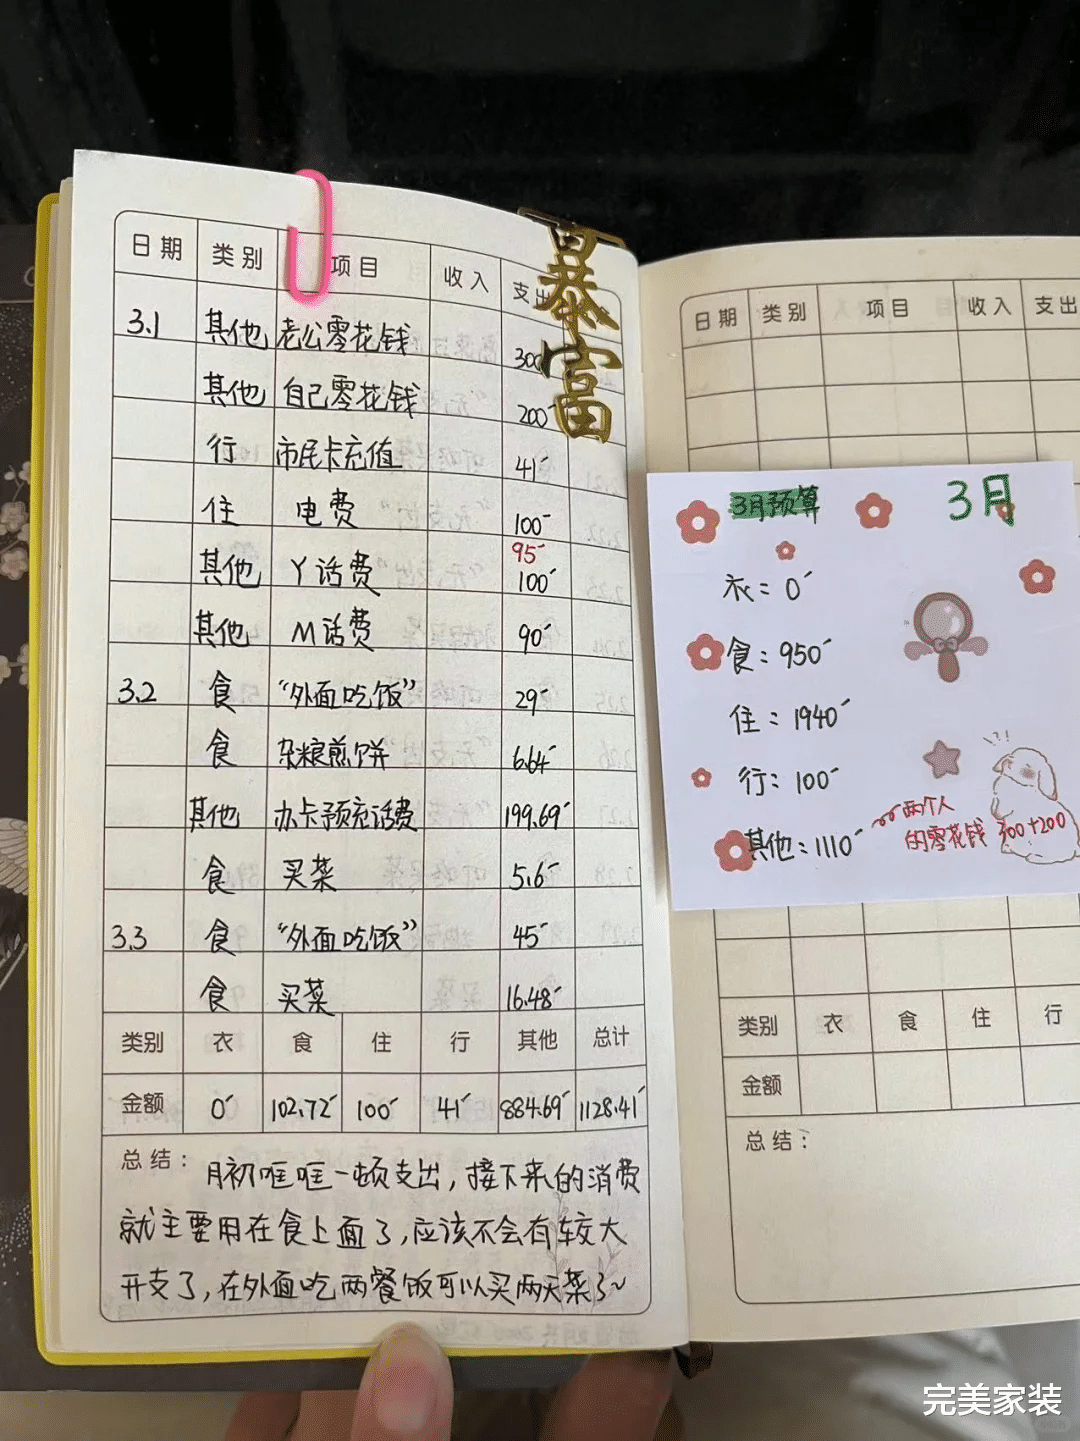 日期 类别 项目 收入 支出
3.1 其他 老公零花钱 300
其他 自己零花钱 200
行 市民卡充值 41
住 电费 100
95
其他 Y话费 100
其他 M话费 90
3.2 食 “外面吃饭” 29
食 杂粮煎饼 6.64
其他 办卡预充话费 199.69
食 买菜 5.6
3.3 食 “外面吃饭” 45
食 买菜 16.48
类别 衣 食 住 行 其他 总计
金额 0 102.72 100 41 884.69 1128.41
总结: 月初哐哐一顿支出，接下来的消费
就主要用在食上面了，应该不会有较大
开支了，在外面吃两餐饭可以买两天菜了~
暴富
日期 类别 项目 收入 支出
3月预算 3月
衣：0
食：950
住：1940
行：100
其他：1110
两个人
的零花钱 300+200
类别 衣 食 住 行
金额
总结:
完美家装